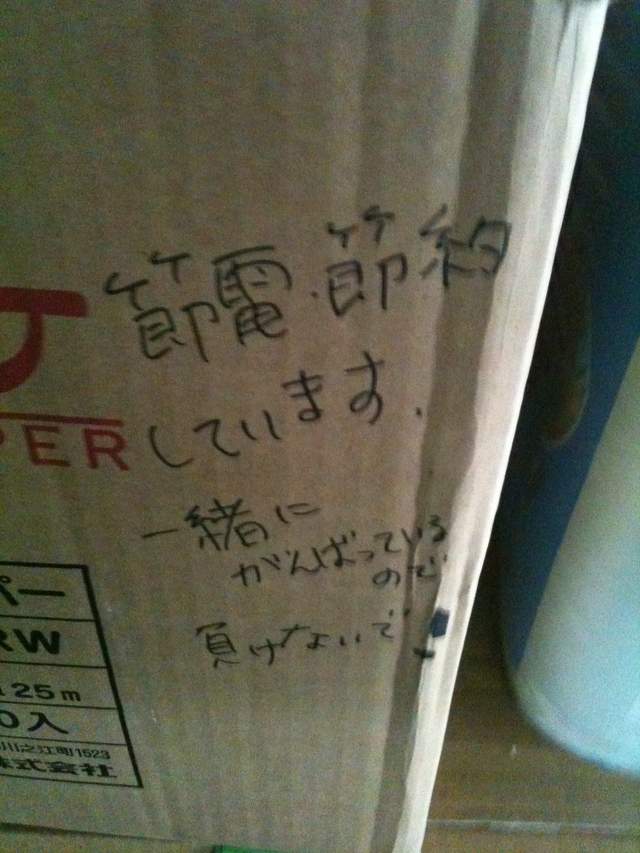 節電・節約
しています.
一緒に
がんばっている
ので
負けないで!
PER
パー
RW
25m
0入
川之江町1523
株式会社